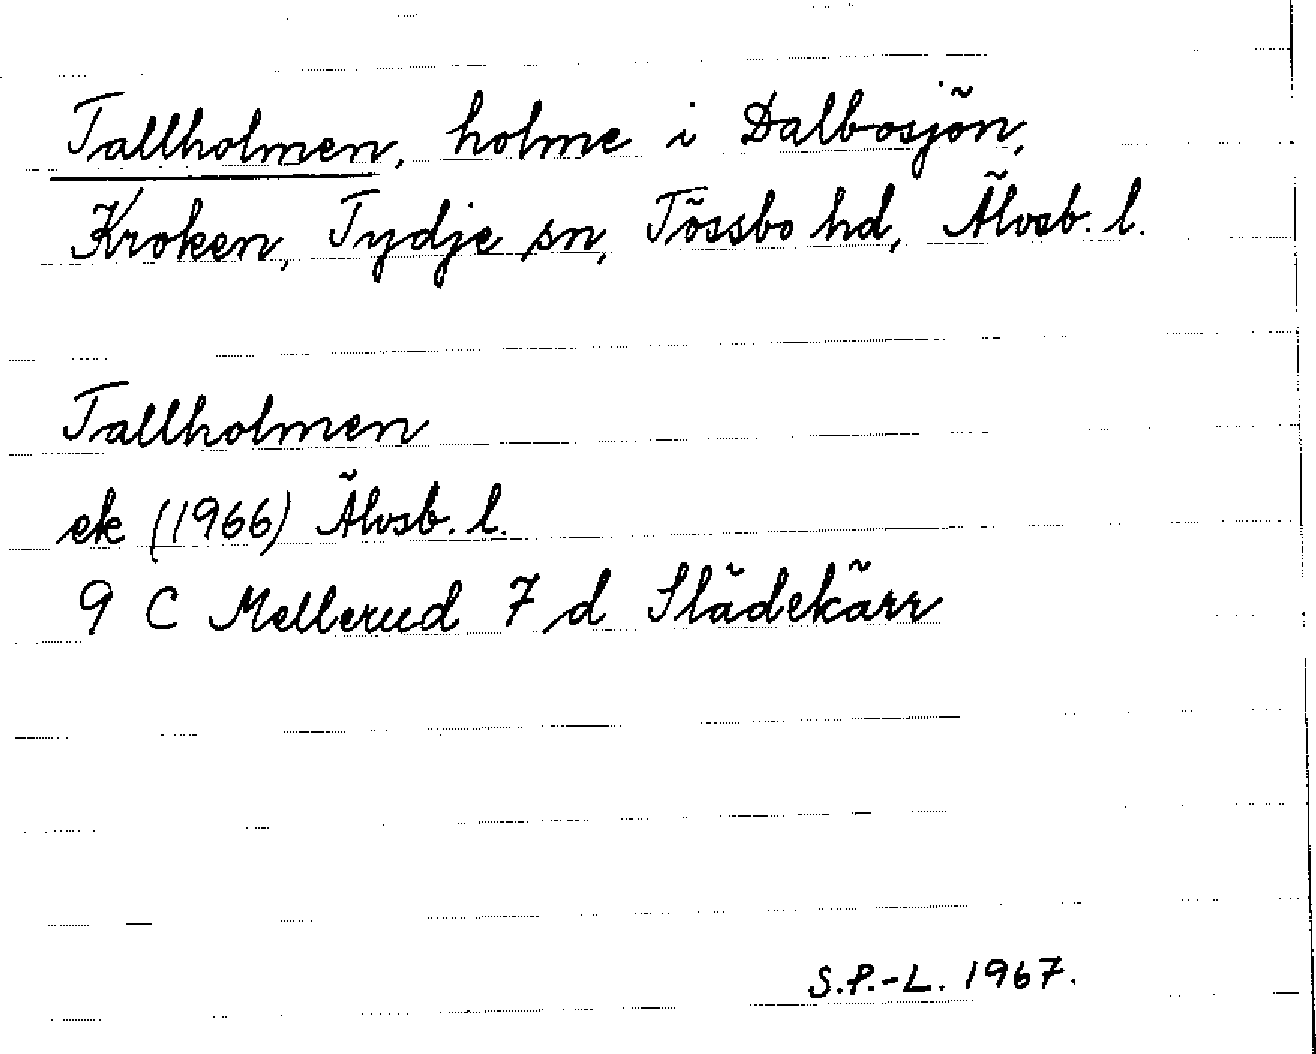 Tallholmen, holme i Dalbosjön,
Kroken, Tydje sn, Tössbo hd, Älvsb. l.
Tallholmen
ek (1966) Älvsb. l.
9 C Mellerud 7 d Slädekärr
S.P.-L. 1967.